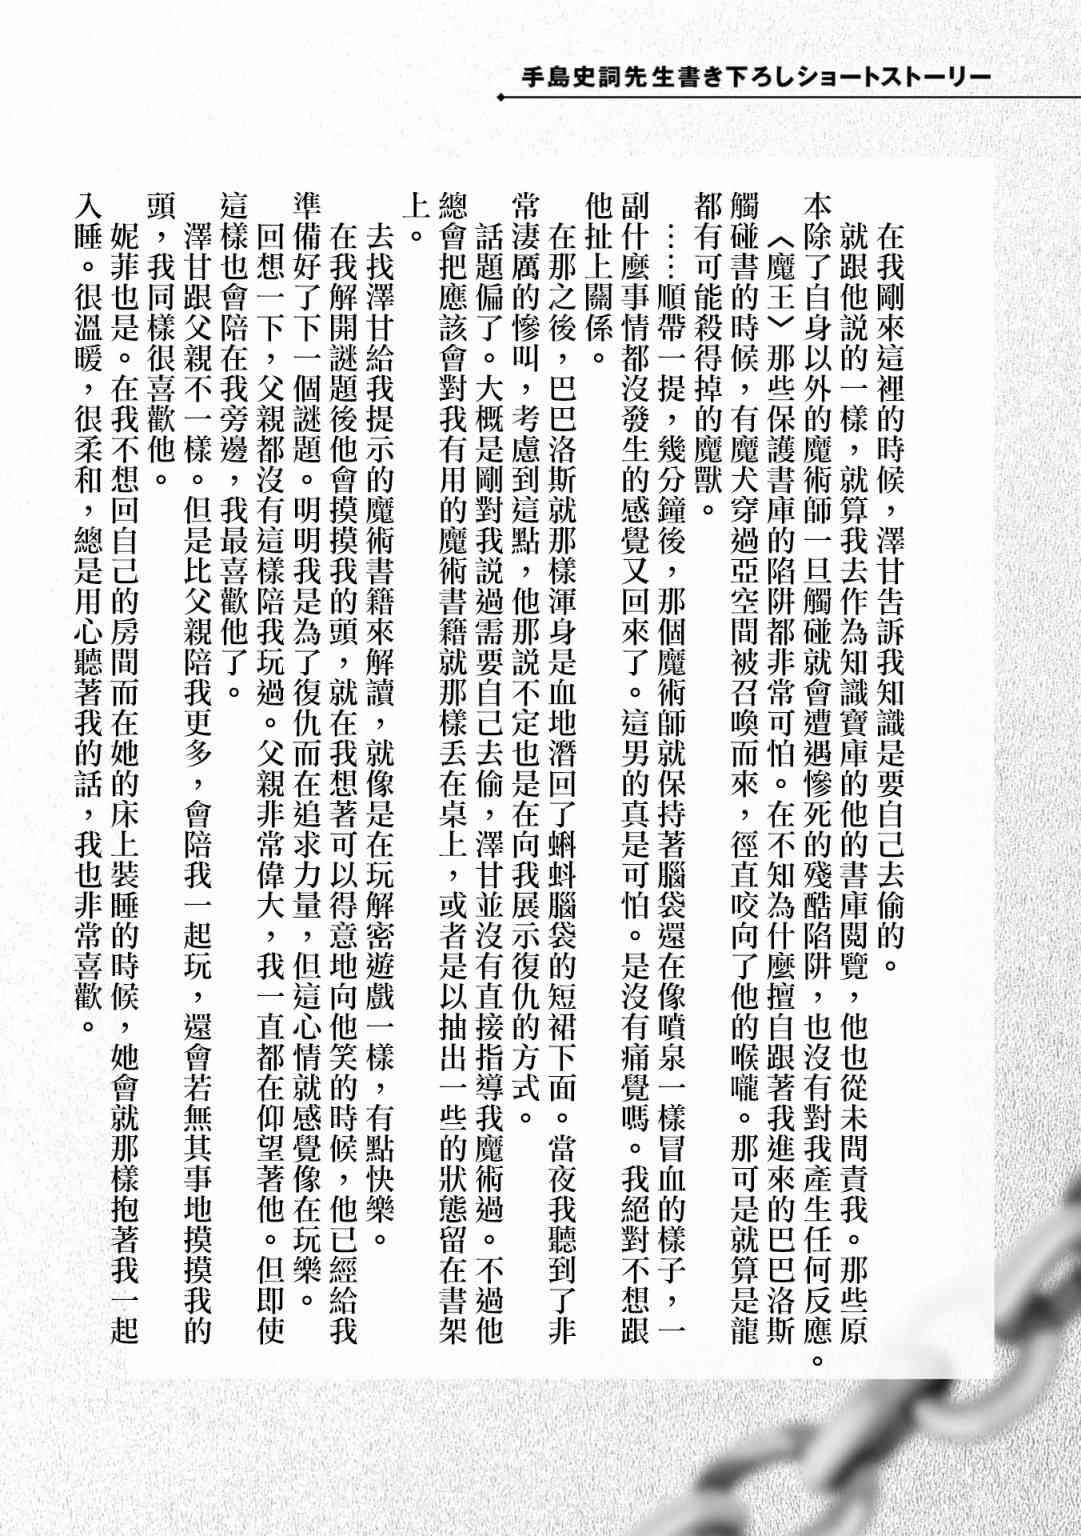 手島史詞先生書き下ろしショートストーリー
在我剛來這裡的時候，澤甘告訴我知識是要自己去偷的。
就跟他說的一樣，就算我去作為知識寶庫的他的書庫閱覽，他也從未問責我。那些原
本除了自身以外的魔術師一旦觸碰就會遭遇慘死的殘酷陷阱，也沒有對我產生任何反應。
〈魔王〉那些保護書庫的陷阱都非常可怕。在不知為什麼擅自跟著我進來的巴巴洛斯
觸碰書的時候，有魔犬穿過亞空間被召喚而來，徑直咬向了他的喉嚨。那可是就算是龍
都有可能殺得掉的魔獸。
……順帶一提，幾分鐘後，那個魔術師就保持著腦袋還在像噴泉一樣冒血的樣子，一
副什麼事情都沒發生的感覺又回來了。這男的真是可怕。是沒有痛覺嗎。我絕對不想跟
他扯上關係。
在那之後，巴巴洛斯就那樣渾身是血地潛回了蝌蚪腦袋的短裙下面。當夜我聽到了非
常淒厲的慘叫，考慮到這點，他那說不定也是在向我展示復仇的方式。
話題偏了。大概是剛對我說過需要自己去偷，澤甘並沒有直接指導我魔術過。不過他
總會把應該會對我有用的魔術書籍就那樣丟在桌上，或者是以抽出一些的狀態留在書架
上。
去找澤甘給我提示的魔術書籍來解讀，就像是在玩解密遊戲一樣，有點快樂。
在我解開謎題後他會摸摸我的頭，就在我想著可以得意地向他笑的時候，他已經給我
準備好了下一個謎題。明明我是為了復仇而在追求力量，但這心情就感覺像在玩樂。
回想一下，父親都沒有這樣陪我玩過。父親非常偉大，我一直都在仰望著他。但即使
這樣也會陪在我旁邊，我最喜歡他了。
澤甘跟父親不一樣。但是比父親陪我更多，會陪我一起玩，還會若無其事地摸摸我的
頭，我同樣很喜歡他。
妮菲也是。在我不想回自己的房間而在她的床上裝睡的時候，她會就那樣抱著我一起
入睡。很溫暖，很柔和，總是用心聽著我的話，我也非常喜歡。